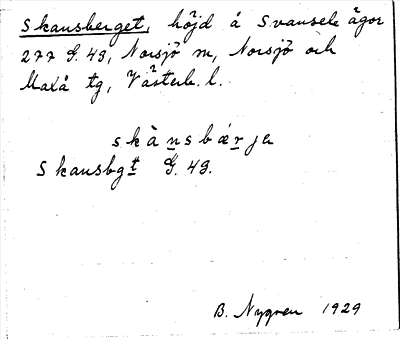 Skansberget, höjd å Svansele ägor
277 G. 43, Norsjö sn, Norsjö och
Malå tg, Västerb. l.
skànsbærje
Skansbgt G. 43.
B. Nygren 1929